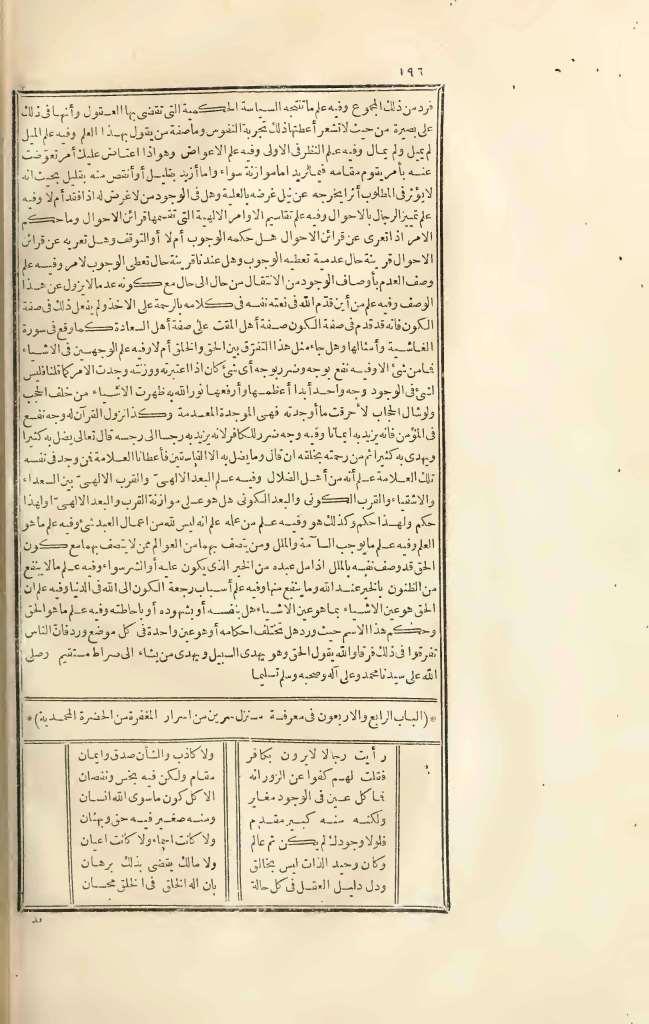 ١٩٦
فرد من ذلك المجموع وفيه علم ما تنتجه السياسة الحكمية التي تقتضي بها العقول وأنها في ذلك
على بصيرة من حيث لا تشعر أعطتها ذلك تجربة النفوس وما صفة من يقول بهذا العلم وفيه علم الميل
لم يميل ولم يمال وفيه علم النظر في الاولى وفيه علم الاعواض وهو اذا اعتاض عليك أمر تعوضت
عنه بأمر يقوم مقامه فيما تريد اما موازنة سواء واما أزيد بقليل أو أنقص منه بقليل بحيث انه
لا يؤثر في المطلوب أثرا يخرجه عن نيل غرضه بالعلية وهل في الوجود من لا غرض له اذا فقد أم لا وفيه
علم تمييز الرجال بالاحوال وفيه علم تقاسيم الاوامر الالهية التي تقسمها قرائن الاحوال وما حكم
الامر اذا تعرى عن قرائن الاحوال هل حكمه الوجوب أم لا أو التوقف وهل تعريه عن قرائن
الاحوال قرينة حال عدمية تعطيه الوجوب وهل عندنا قرينة حال تعطى الوجوب لامر وفيه علم
وصف العدم بأوصاف الوجود من الانتقال من حال الى حال مع كونه عدما لا يزول عن هذا
الوصف وفيه علم من أين قدم الله في نعته نفسه في كلامه بالرحمة على الاخذ ولم يفعل ذلك في صفة
الكون فانه قد قدم في صفة الكون صفة أهل المقت على صفة أهل السعادة كما وقع في سورة
الغاشية وأمثالها وهل جاء مثل هذا التفرق بين الحق والخلق أم لا وفيه علم الوجهين في الاشياء
فما من شئ الا وفيه نفع بوجه وضرر بوجه أى شئ كان اذا اعتبرته ووزنته وجدت الامر كما قلنا فليس
لشئ في الوجود وجه واحد أبدا أعظمها وأرفعها نور الله به ظهرت الاشياء من خلف الحجب
ولو شال الحجاب لأحرقت ما أوجدته فهى الموجدة المعدمة وكذا نزول القرآن له وجه نفع
في المؤمن فانه يزيد به ايمانا وفيه وجه ضرر للكافر لانه يزيد به رجسا الى رجسه قال تعالى يضل به كثيرا
ويهدى به كثيرا ثم من رحمته بخلقه ان قال وما يضل به الا الفاسقين فأعطانا العلامة فمن وجد في نفسه
تلك العلامة علم أنه من أهل الضلال وفيه علم البعد الالهى والقرب الالهى بين السعداء
والاشقياء والقرب الكونى والبعد الكونى هل هو على موازنة القرب والبعد الالهى أو لهذا
حكم ولهذا حكم وكذلك هو وفيه علم من عمله علم انه ليس لله من اعمال العبد شئ وفيه علم ما هو
العلم وفيه علم ما يوجب السآمة والملل ومن يتصف بهما من العوالم ممن لا يتصف بهما مع كون
الحق قد وصف نفسه بالملل اذا مل عبده من الخير الذى يكون عليه أو الشر سواء وفيه علم ما لا ينفع
من الظنون بالخير عند الله وما ينفع منها وفيه علم أسباب رجعة الكون الى الله في الدنيا وفيه علم ان
الحق هو عين الاشياء بما هو عين الاشياء هل بنفسه أو بشهوده أو باحاطته وفيه علم ما هو الحق
وحكم هذا الاسم حيث ورد هل تختلف احكامه أو هو عين واحدة في كل موضع ورد فان الناس
تفرقوا في ذلك فرقا والله يقول الحق وهو يهدى السبيل ويهدى من يشاء الى صراط مستقيم وصلى
الله على سيدنا محمد وعلى آله وصحبه وسلم تسليما
*(الباب الرابع والاربعون في معرفة منزل سرين من اسرار المغفرة من الحضرة المحمدية)*
رأيت رجالا لا يرون بكافر ولا كاذب والشأن صدق وايمان
فقلت لهم كفوا عن الزور انه مقام ولكن فيه بخس ونقصان
فما كل عين في الوجود مغاير الا كل كون ما سوى الله انسان
ولكنه منه كبير مقدم ومنه صغير فيه حق وبهتان
فلولا وجودك لم يكن ثم عالم ولا كانت اسماء ولا كانت اعيان
وكان وحيد الذات ليس بخالق ولا مالك يقضى بذلك برهان
ودل دليل العقل في كل حالة بان اله الخلق في الخلق محسان